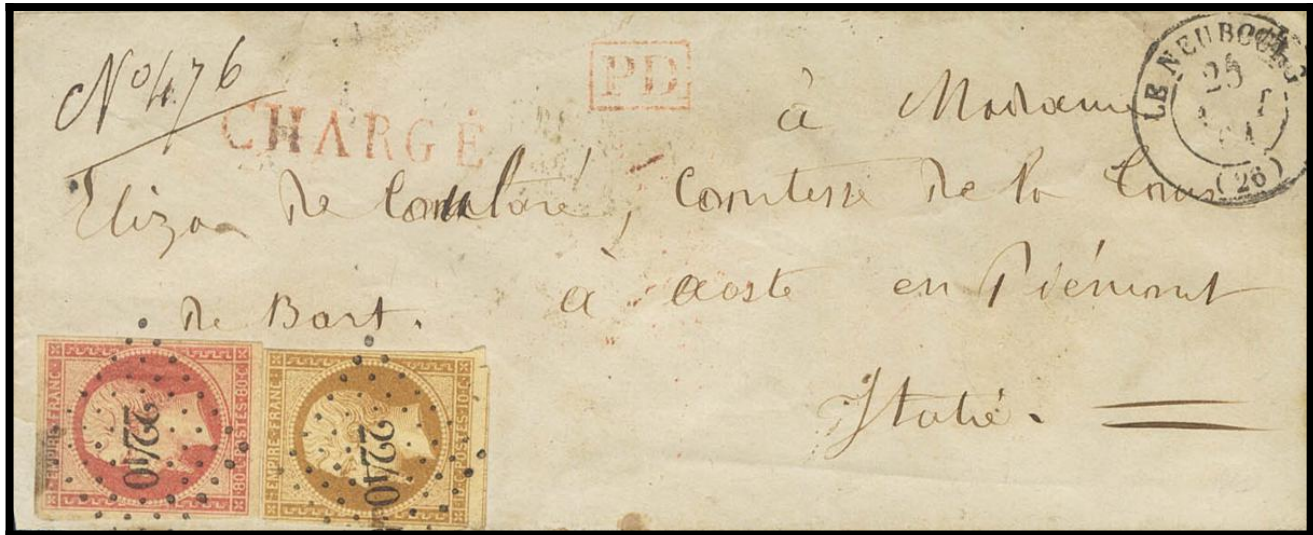 N° 476
CHARGÉ
PD
LE NEUBOURG
25
(26)
à Madame
Eliza de , Comtesse de la
de Bart. à Aoste en Piémont
Italie.
EMPIRE FRANC.
80 C. POSTES 80 C.
2240
EMPIRE FRANC.
10 C. POSTES 10 C.
2240